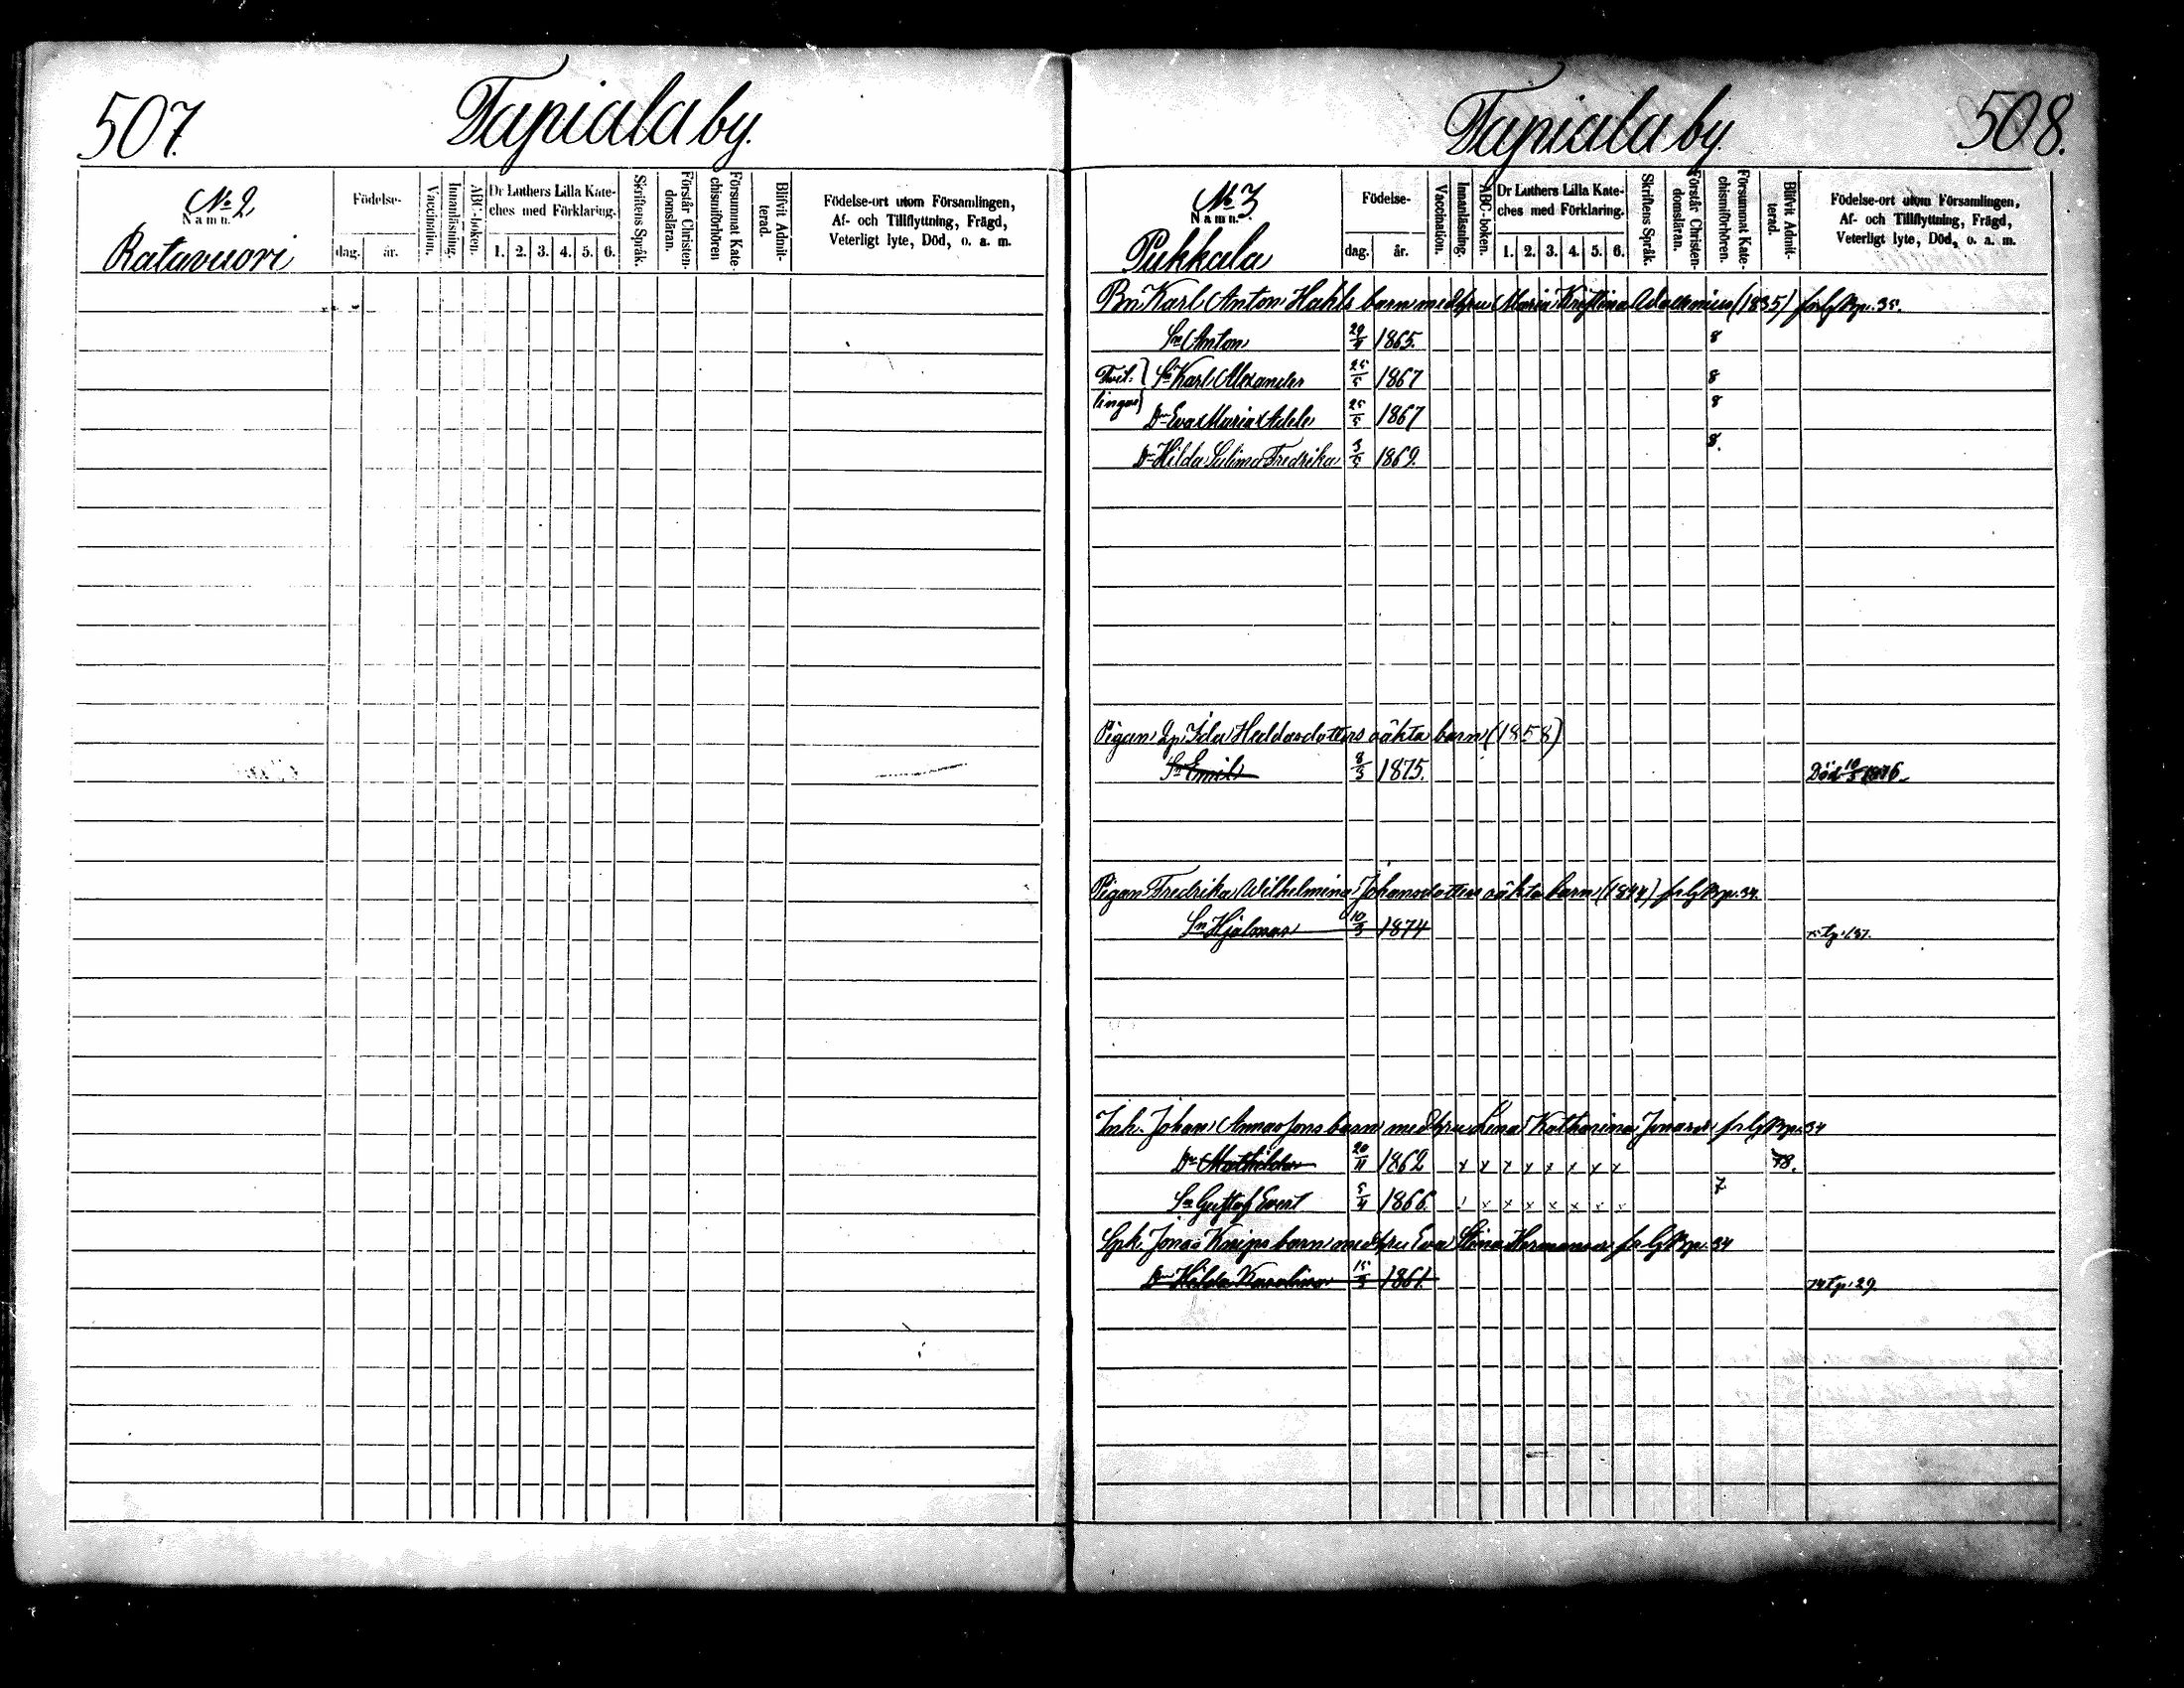 507.
Tapiala by.
№ 2
Namn.
Ratavuori
Födelse-
dag. år.
Vaccination.
Innanläsning.
ABC-boken.
Dr Luthers Lilla Kate-
ches med Förklaring.
1. 2. 3. 4. 5. 6.
Skriftens Språk.
Förstår Christen-
domsläran.
Försummat Kate-
chismiförhören
Blifvit Admit-
terad.
Födelse-ort utom Församlingen,
Af- och Tillflyttning, Frägd,
Veterligt lyte, Död, o. a. m.
Tapiala by.
508.
№ 3
Namn.
Pukkala
Födelse-
dag. år.
Vaccination.
Innanläsning.
ABC-boken.
Dr Luthers Lilla Kate-
ches med Förklaring.
1. 2. 3. 4. 5. 6.
Skriftens Språk.
Förstår Christen-
domsläran.
Försummat Kate-
chismiförhören.
Blifvit Admit-
terad.
Födelse-ort utom Församlingen,
Af- och Tillflyttning, Frägd,
Veterligt lyte, Död, o. a. m.
Bn Karl Anton Hahls barn med hru Maria Kristina (1835) 35.
Sn Anton 1865. 8
Tvil- Sn Karl Alexander 25/5 1867 8
lingar Dr Eva Maria Adele 25/5 1867 8
Dr Hilda Selima Fredrika 1869. 8.
Pigan Ida Heddasdotters oäkta barn (1858)
Sn Emil 8/3 1875. Död 1876
Pigan Fredrika Wilhelmina Johansdotters oäkta barn (1844) 34.
Sn Hjalmar 10/3 1874
Inh. Johan barn med hru Lena Katharina 34
Dr Mathilda 20/11 1862 x x x x x x x x 78.
Sn Gustaf Evert 5/4 1866. x x x x x x x 7
Jonas Knips barn med hru Eva Stina 34
Dr Hilda Karolina 15/3 1861. 29.